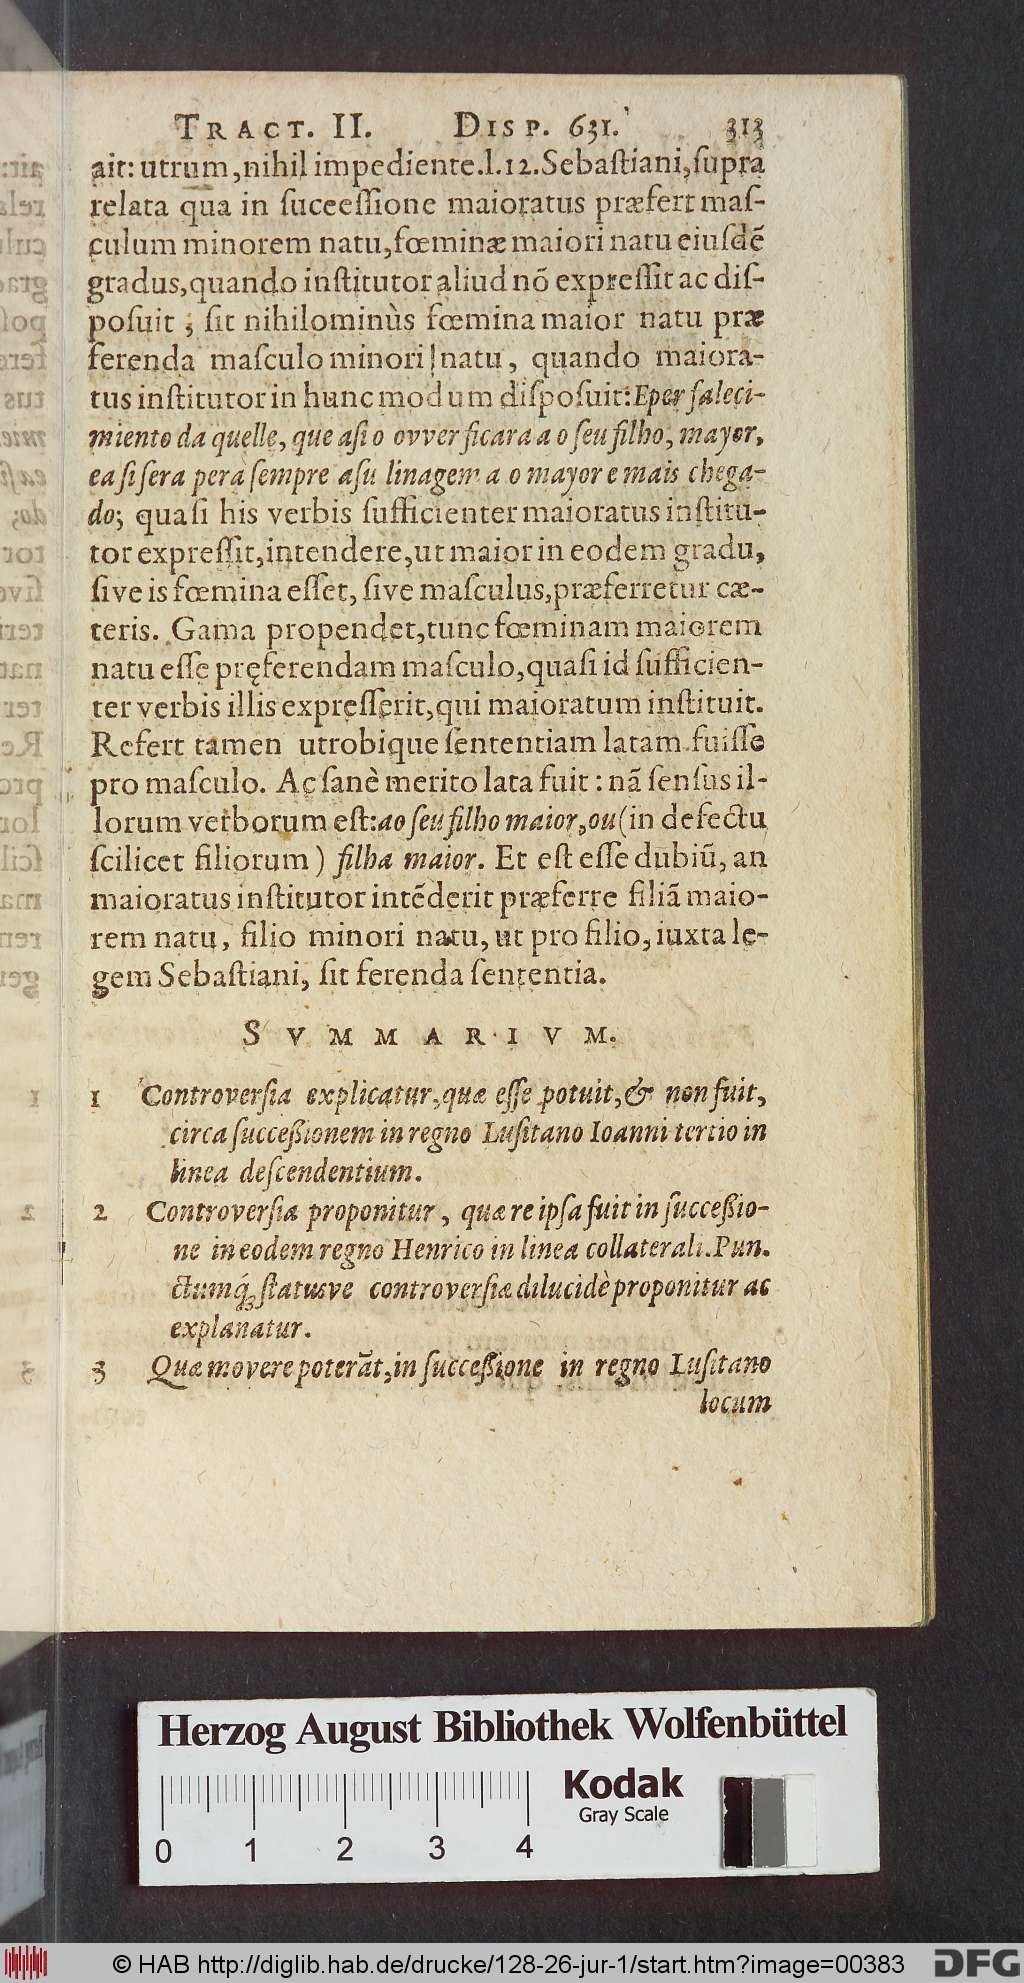 TRACT. II. DISP. 631. 313
ait: utrum, nihil impediente. l. 12. Sebaſtiani, ſupra
relata qua in ſuceeſſione maioratus præfert maſ-
culum minorem natu, fœminæ maiori natu eiuſdē
gradus, quando inſtitutor aliud nō expreſſit ac diſ-
poſuit, ſit nihilominùs fœmina maior natu præ
ferenda maſculo minori natu, quando maiora-
tus inſtitutor in hunc modum diſpoſuit: Eper faleci-
miento da quelle, que aſi o ovver ficara a o ſeu filho, mayor,
ea ſi ſera pera ſempre aſu linagem a o mayor e mais chega-
do; quaſi his verbis ſufficienter maioratus inſtitu-
tor expreſſit, intendere, ut maior in eodem gradu,
ſive is fœmina eſſet, ſive maſculus, præferretur cæ-
teris. Gama propendet, tunc fœminam maiorem
natu eſſe pręferendam maſculo, quaſi id ſufficien-
ter verbis illis expreſſerit, qui maioratum inſtituit.
Refert tamen utrobique ſententiam latam fuiſſe
pro maſculo. Ac ſanè merito lata fuit: nā ſenſus il-
lorum verborum eſt: ao ſeu filho maior, ou (in defectu
ſcilicet filiorum) filha maior. Et eſt eſſe dubiū, an
maioratus inſtitutor intēderit præferre filiā maio-
rem natu, filio minori natu, ut pro filio, iuxta le-
gem Sebaſtiani, ſit ferenda ſententia.
SVMMARIVM.
1 Controverſia explicatur, quæ eſſe potuit, & non fuit,
circa ſucceßionem in regno Luſitano Ioanni tertio in
linea deſcendentium.
2 Controverſia proponitur, quæ re ipſa fuit in ſucceßio-
ne in eodem regno Henrico in linea collaterali. Pun-
ctumq́; ſtatusve controverſiæ dilucidè proponitur ac
explanatur.
3 Quæ movere poterāt, in ſucceßione in regno Luſitano
locum
Herzog August Bibliothek Wolfenbüttel
Kodak
Gray Scale
0 1 2 3 4
© HAB http://diglib.hab.de/drucke/128-26-jur-1/start.htm?image=00383
DFG